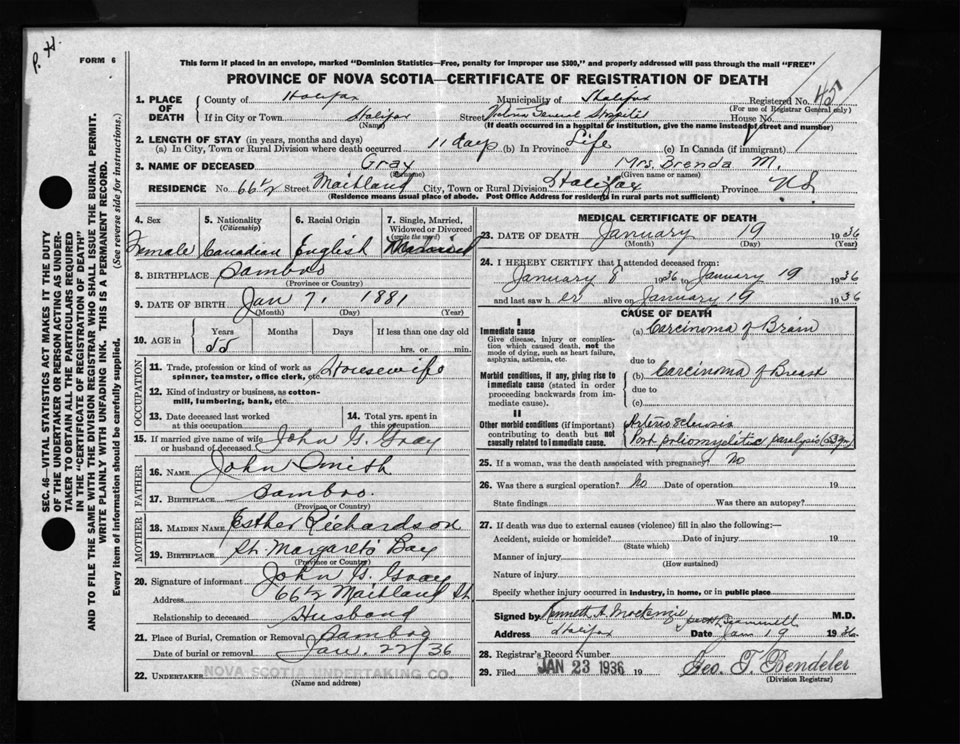 P. H.
FORM 6
This form if placed in an envelope, marked "Dominion Statistics—Free, penalty for improper use $300," and properly addressed will pass through the mail "FREE"
PROVINCE OF NOVA SCOTIA—CERTIFICATE OF REGISTRATION OF DEATH
SEC. 46—VITAL STATISTICS ACT MAKES IT THE DUTY
OF THE UNDERTAKER OR PERSON ACTING AS UNDER-
TAKER TO OBTAIN ALL THE PARTICULARS REQUIRED
IN THE "CERTIFICATE OF REGISTRATION OF DEATH"
AND TO FILE THE SAME WITH THE DIVISION REGISTRAR WHO SHALL ISSUE THE BURIAL PERMIT.
WRITE PLAINLY WITH UNFADING INK. THIS IS A PERMANENT RECORD.
Every item of information should be carefully supplied. (See reverse side for instructions.)
1. PLACE OF DEATH
County of Halifax Municipality of Halifax Registered No.
(For use of Registrar General only)
If in City or Town Halifax Street Victoria General Hospital House No.
(Name) (If death occurred in a hospital or institution, give the name instead of street and number)
2. LENGTH OF STAY (in years, months and days)
(a) In City, Town or Rural Division where death occurred 11 days (b) In Province Life (c) In Canada (if immigrant)
3. NAME OF DECEASED Gray Mrs. Brenda M.
(Surname) (Given name or names)
RESIDENCE No. 66½ Street Maitland City, Town or Rural Division Halifax Province N.S.
(Residence means usual place of abode. Post Office Address for residents in rural parts not sufficient)
4. Sex Female
5. Nationality (Citizenship) Canadian
6. Racial Origin English
7. Single, Married, Widowed or Divorced (write the word) Married
8. BIRTHPLACE Sambro
(Province or Country)
9. DATE OF BIRTH Jan 7, 1881
(Month) (Day) (Year)
10. AGE in Years Months Days If less than one day old
55 hrs. or min.
OCCUPATION
11. Trade, profession or kind of work as spinner, teamster, office clerk, etc. Housewife
12. Kind of industry or business, as cotton-mill, lumbering, bank, etc.
13. Date deceased last worked at this occupation
14. Total yrs. spent in this occupation
15. If married give name of wife or husband of deceased John G. Gray
FATHER
16. NAME John Smith
17. BIRTHPLACE Sambro.
(Province or Country)
MOTHER
18. MAIDEN NAME Esther Richardson
19. BIRTHPLACE St. Margaret's Bay
(Province or Country)
20. Signature of informant John G. Gray
Address 66½ Maitland St.
Relationship to deceased Husband
21. Place of Burial, Cremation or Removal Sambro
Date of burial or removal Jan. 22/36
22. UNDERTAKER NOVA SCOTIA UNDERTAKING CO.
(Name and address)
MEDICAL CERTIFICATE OF DEATH
23. DATE OF DEATH January 19 1936
(Month) (Day) (Year)
24. I HEREBY CERTIFY that I attended deceased from:
January 8 1936 to January 19 1936
and last saw her alive on January 19 1936
CAUSE OF DEATH
I
Immediate cause
Give disease, injury or complication which caused death, not the mode of dying, such as heart failure, asphyxia, asthenia, etc.
(a) Carcinoma of Brain
due to
Morbid conditions, if any, giving rise to immediate cause (stated in order proceeding backwards from immediate cause).
(b) Carcinoma of Breast
due to
(c)
II
Other morbid conditions (if important) contributing to death but not causally related to immediate cause.
Arteriosclerosis
Post poliomyelitic paralysis (53 yrs)
25. If a woman, was the death associated with pregnancy? No
26. Was there a surgical operation? No Date of operation 19
State findings Was there an autopsy?
27. If death was due to external causes (violence) fill in also the following:—
Accident, suicide or homicide? Date of injury 19
(State which)
Manner of injury
(How sustained)
Nature of injury
Specify whether injury occurred in industry, in home, or in public place
Signed by Kenneth A. MacKenzie M.D.
Address Halifax Date Jan 19 1936
28. Registrar's Record Number
29. Filed JAN 23 1936 19 Geo. T. Bendeler
(Division Registrar)